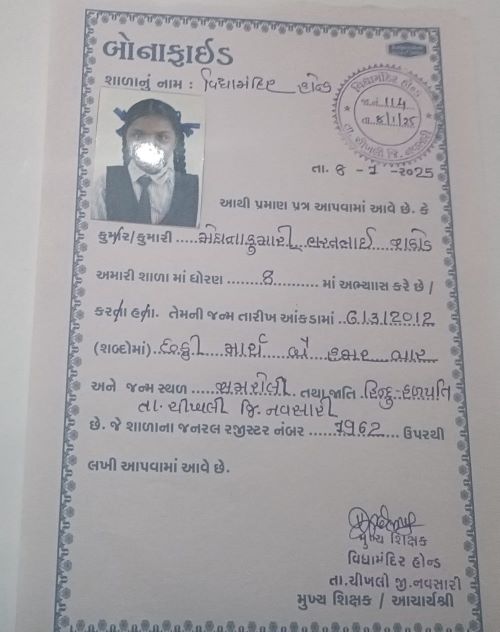 બોનાફાઈડ
શાળાનું નામ : વિદ્યામંદિર હોન્ડ
વિદ્યામંદિર હોન્ડ
જા.નં 114
તા. 8/1/25
તા. ચીખલી જિ. નવસારી
તા. 8 - 1 - 2025
આથી પ્રમાણ પત્ર આપવામાં આવે છે. કે
કુમાર/કુમારી ..... મેઘનાકુમારી ભરતભાઈ રાઠોડ
અમારી શાળા માં ધોરણ ......... 8 ......... માં અભ્યાસ કરે છે /
કરતા હતા. તેમની જન્મ તારીખ આંકડામાં ..
(શબ્દોમાં) માર્ચ બે હજાર બાર
અને જન્મ સ્થળ ..... સમરોલી .. તથા જાતિ . હિન્દુ-હળપતિ
તા. ચીખલી જિ. નવસારી
છે. જે શાળાના જનરલ રજીસ્ટર નંબર ...... 7962 ..... ઉપરથી
લખી આપવામાં આવે છે.
મુખ્ય શિક્ષક
વિદ્યામંદિર હોન્ડ
તા.ચીખલી જી.નવસારી
મુખ્ય શિક્ષક / આચાર્યશ્રી